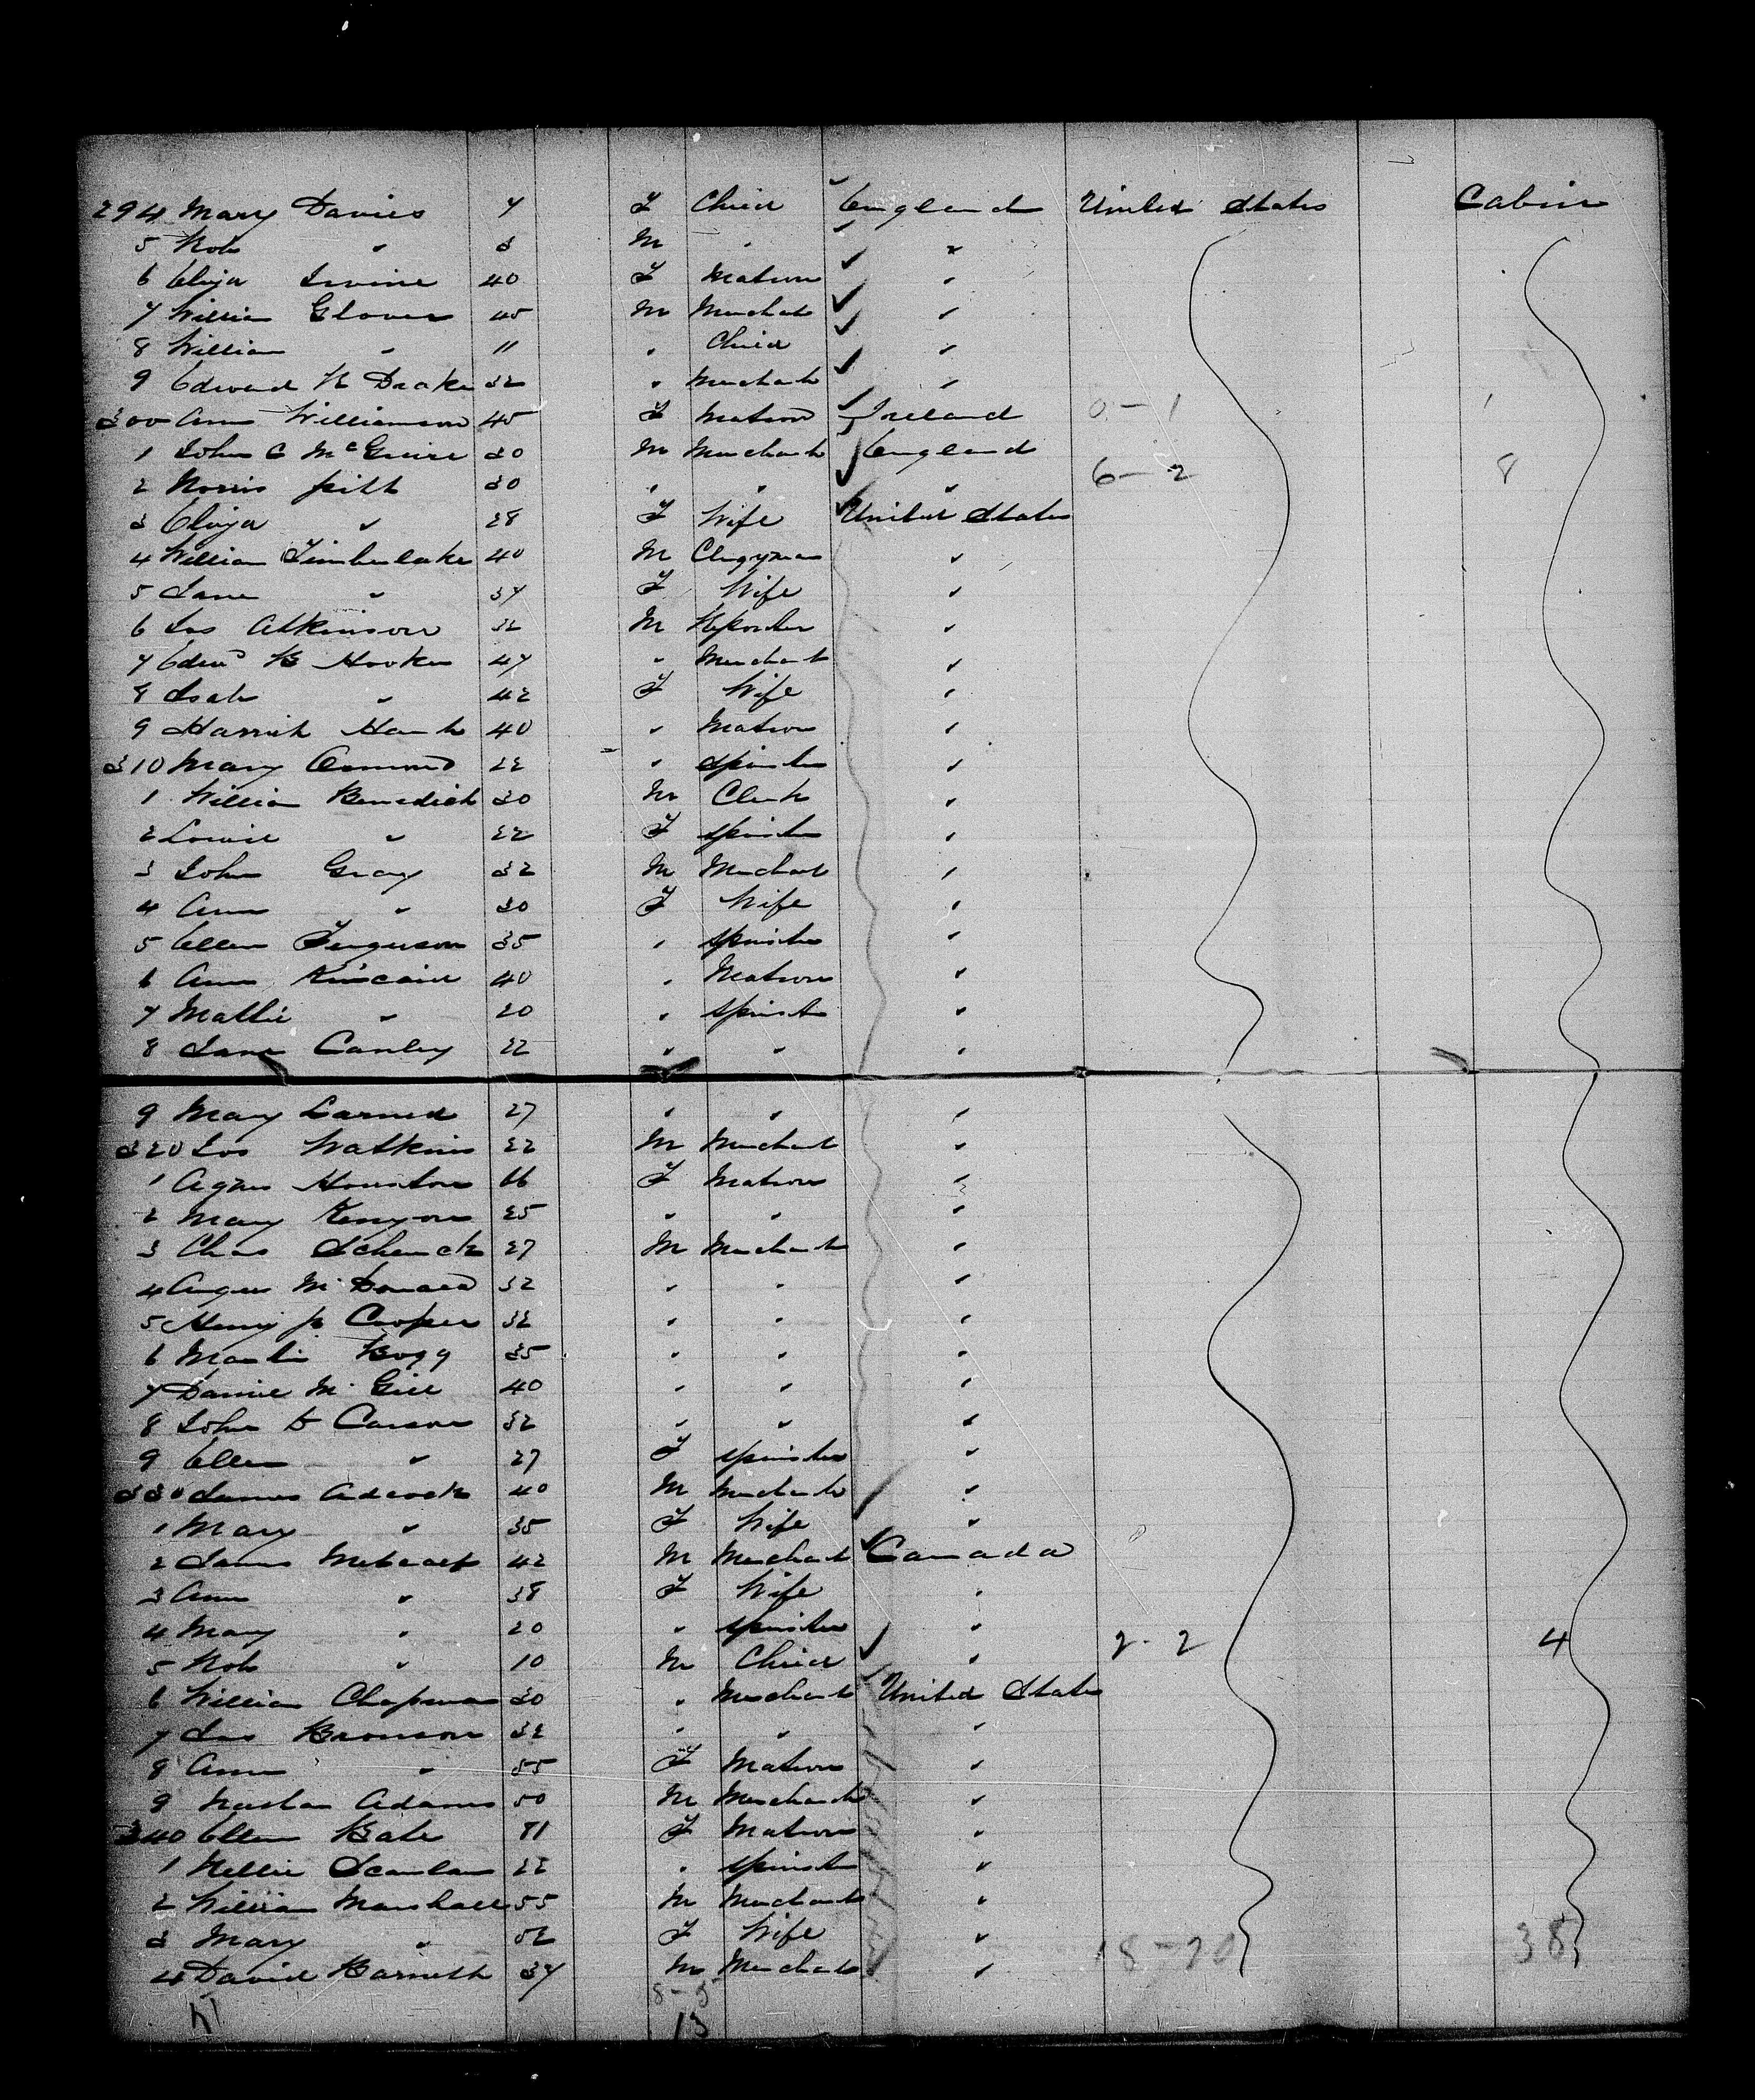 294 Mary Davies 7 F Child England United States Cabin
5 Rob " 3 M " "
6 Eliza Irvine 40 F Matron "
7 William Glover 45 M Merchant "
8 William " 11 " Child "
9 Edward K Drake 32 " Merchant "
300 Ann Williamson 45 F Matron Ireland 0-1 1
1 John C McGuire 30 M Merchant England
2 Norris Pitt 30 " " " 6-2 8
3 Eliza " 28 F Wife United States
4 William Timberlake 40 M Clergyman "
5 Jane " 37 F Wife "
6 Jas Atkinson 32 M Reporter "
7 Edwd B Hooker 47 " Merchant "
8 Isab " 42 F Wife "
9 Harriet 40 " Matron "
310 Mary 22 " Spinster "
1 William Benedict 30 M Clerk "
2 Louise " 22 F Spinster "
3 John Gray 32 M Merchant "
4 Ann " 30 F Wife "
5 Ellen Ferguson 35 " Spinster "
6 Ann Kincaid 40 " Matron "
7 Mattie " 20 " Spinster "
8 Jane Canley 22 " " "
9 Mary Larned 27 " " "
320 Jos Watkins 22 M Merchant "
1 Agnes Houston 66 F Matron "
2 Mary Kenyon 25 " " "
3 Chas Schenck 27 M Merchant "
4 Angus McDonald 32 " " "
5 Henry P Cooper 32 " " "
6 Martin Bogg 35 " " "
7 Daniel McGill 40 " " "
8 John D Carson 32 " " "
9 Ellen " 27 F Spinster "
330 James Adcock 40 M Merchant "
1 Mary " 35 F Wife "
2 James Metcalf 42 M Merchant Canada
3 Ann " 38 F Wife "
4 Mary " 20 " Spinster " 2-2 4
5 Rob " 10 M Child "
6 William Chapman 30 " Merchant United States
7 Jas Bronson 32 " " "
8 Ann " 55 F Matron "
9 Nathan Adams 50 M Merchant "
340 Ellen Bate 81 F Matron "
1 Nellie Scanlan 22 " Spinster "
2 William Marshall 55 M Merchant "
3 Mary " 52 F Wife "
4 David Barnett 37 M Merchant " 18-20 38
13